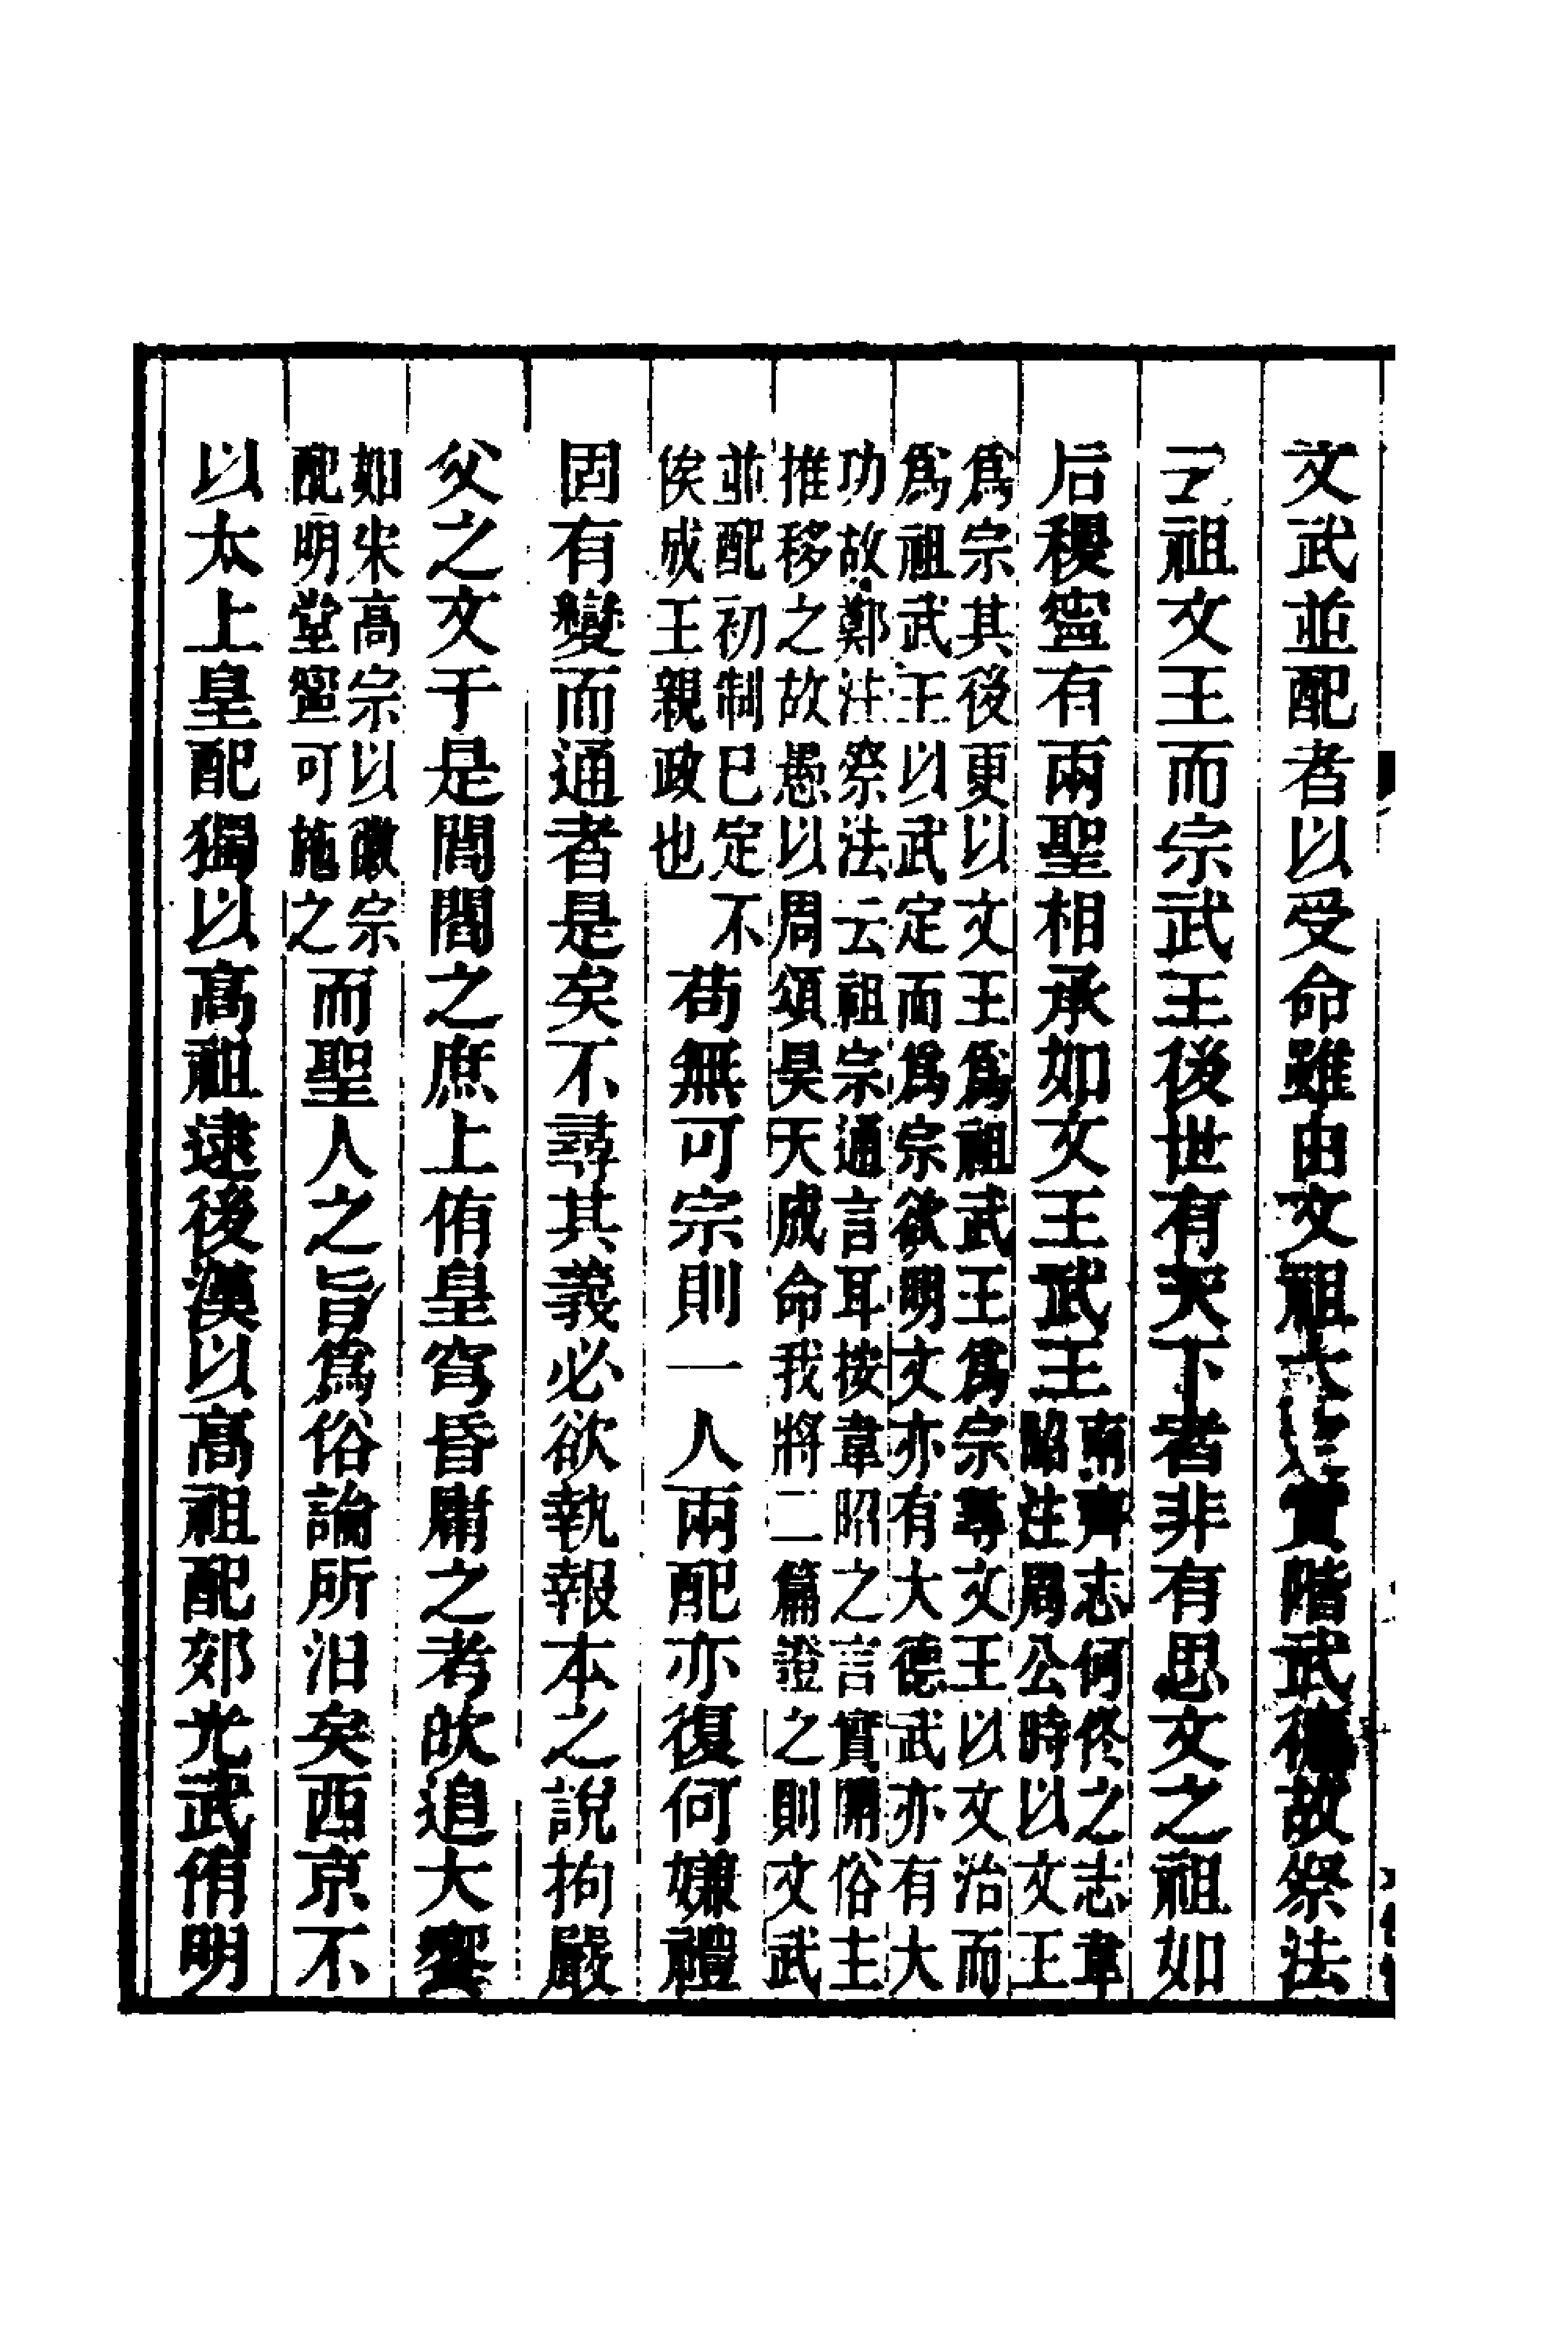 文武並配者以受命雖由文祖大定實階武德故祭法
祖文王而宗武王後世有天下者非有思文之祖如
后稷寧有兩聖相承如文王武王
南齊志何佟之志韋
昭注周公時以文王
爲宗其後更以文王爲祖武王爲宗尊文王以文治而
爲祖武王以武定而爲宗欲明文亦有大德武亦有大
功故鄭注祭法云祖宗通言耳按韋昭之言實開俗主
推移之故愚以周頌昊天成命我將二篇證之則文武
並配初制已定不
俟成王親政也
苟無可宗則一人兩配亦復何嫌禮
固有變而通者是矣不尋其義必欲執報本之說拘嚴
父之文于是閭閻之庶上侑皇穹昏庸之考欻追大饗
如宋高宗以徽宗
配明堂寧可施之
而聖人之旨爲俗論所汨矣西京不
以太上皇配獨以高祖逮後漢以高祖配郊光武侑明